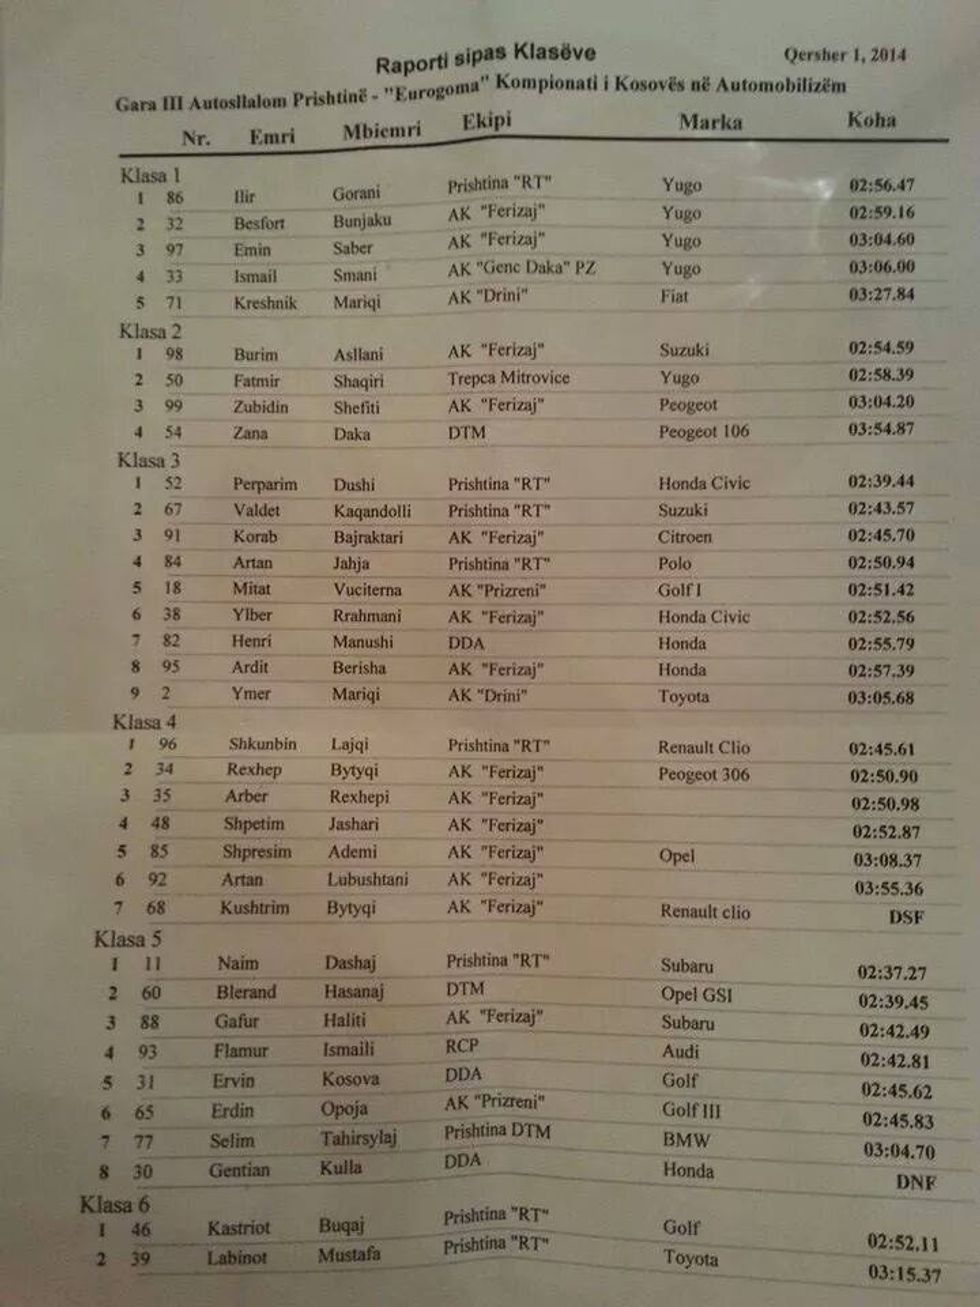 Raporti sipas Klasëve Qersher 1, 2014
Gara III Autosllalom Prishtinë - "Eurogoma" Kompionati i Kosovës në Automobilizëm
Nr. Emri Mbiemri Ekipi Marka Koha
Klasa 1
1 86 Ilir Gorani Prishtina "RT" Yugo 02:56.47
2 32 Besfort Bunjaku AK "Ferizaj" Yugo 02:59.16
3 97 Emin Saber AK "Ferizaj" Yugo 03:04.60
4 33 Ismail Smani AK "Genc Daka" PZ Yugo 03:06.00
5 71 Kreshnik Mariqi AK "Drini" Fiat 03:27.84
Klasa 2
1 98 Burim Asllani AK "Ferizaj" Suzuki 02:54.59
2 50 Fatmir Shaqiri Trepca Mitrovice Yugo 02:58.39
3 99 Zubidin Shefiti AK "Ferizaj" Peogeot 03:04.20
4 54 Zana Daka DTM Peogeot 106 03:54.87
Klasa 3
1 52 Perparim Dushi Prishtina "RT" Honda Civic 02:39.44
2 67 Valdet Kaqandolli Prishtina "RT" Suzuki 02:43.57
3 91 Korab Bajraktari AK "Ferizaj" Citroen 02:45.70
4 84 Artan Jahja Prishtina "RT" Polo 02:50.94
5 18 Mitat Vuciterna AK "Prizreni" Golf I 02:51.42
6 38 Ylber Rrahmani AK "Ferizaj" Honda Civic 02:52.56
7 82 Henri Manushi DDA Honda 02:55.79
8 95 Ardit Berisha AK "Ferizaj" Honda 02:57.39
9 2 Ymer Mariqi AK "Drini" Toyota 03:05.68
Klasa 4
1 96 Shkunbin Lajqi Prishtina "RT" Renault Clio 02:45.61
2 34 Rexhep Bytyqi AK "Ferizaj" Peogeot 306 02:50.90
3 35 Arber Rexhepi AK "Ferizaj" 02:50.98
4 48 Shpetim Jashari AK "Ferizaj" 02:52.87
5 85 Shpresim Ademi AK "Ferizaj" Opel 03:08.37
6 92 Artan Lubushtani AK "Ferizaj" 03:55.36
7 68 Kushtrim Bytyqi AK "Ferizaj" Renault clio DSF
Klasa 5
1 11 Naim Dashaj Prishtina "RT" Subaru 02:37.27
2 60 Blerand Hasanaj DTM Opel GSI 02:39.45
3 88 Gafur Haliti AK "Ferizaj" Subaru 02:42.49
4 93 Flamur Ismaili RCP Audi 02:42.81
5 31 Ervin Kosova DDA Golf 02:45.62
6 65 Erdin Opoja AK "Prizreni" Golf III 02:45.83
7 77 Selim Tahirsylaj Prishtina DTM BMW 03:04.70
8 30 Gentian Kulla DDA Honda DNF
Klasa 6
1 46 Kastriot Buqaj Prishtina "RT" Golf 02:52.11
2 39 Labinot Mustafa Prishtina "RT" Toyota 03:15.37